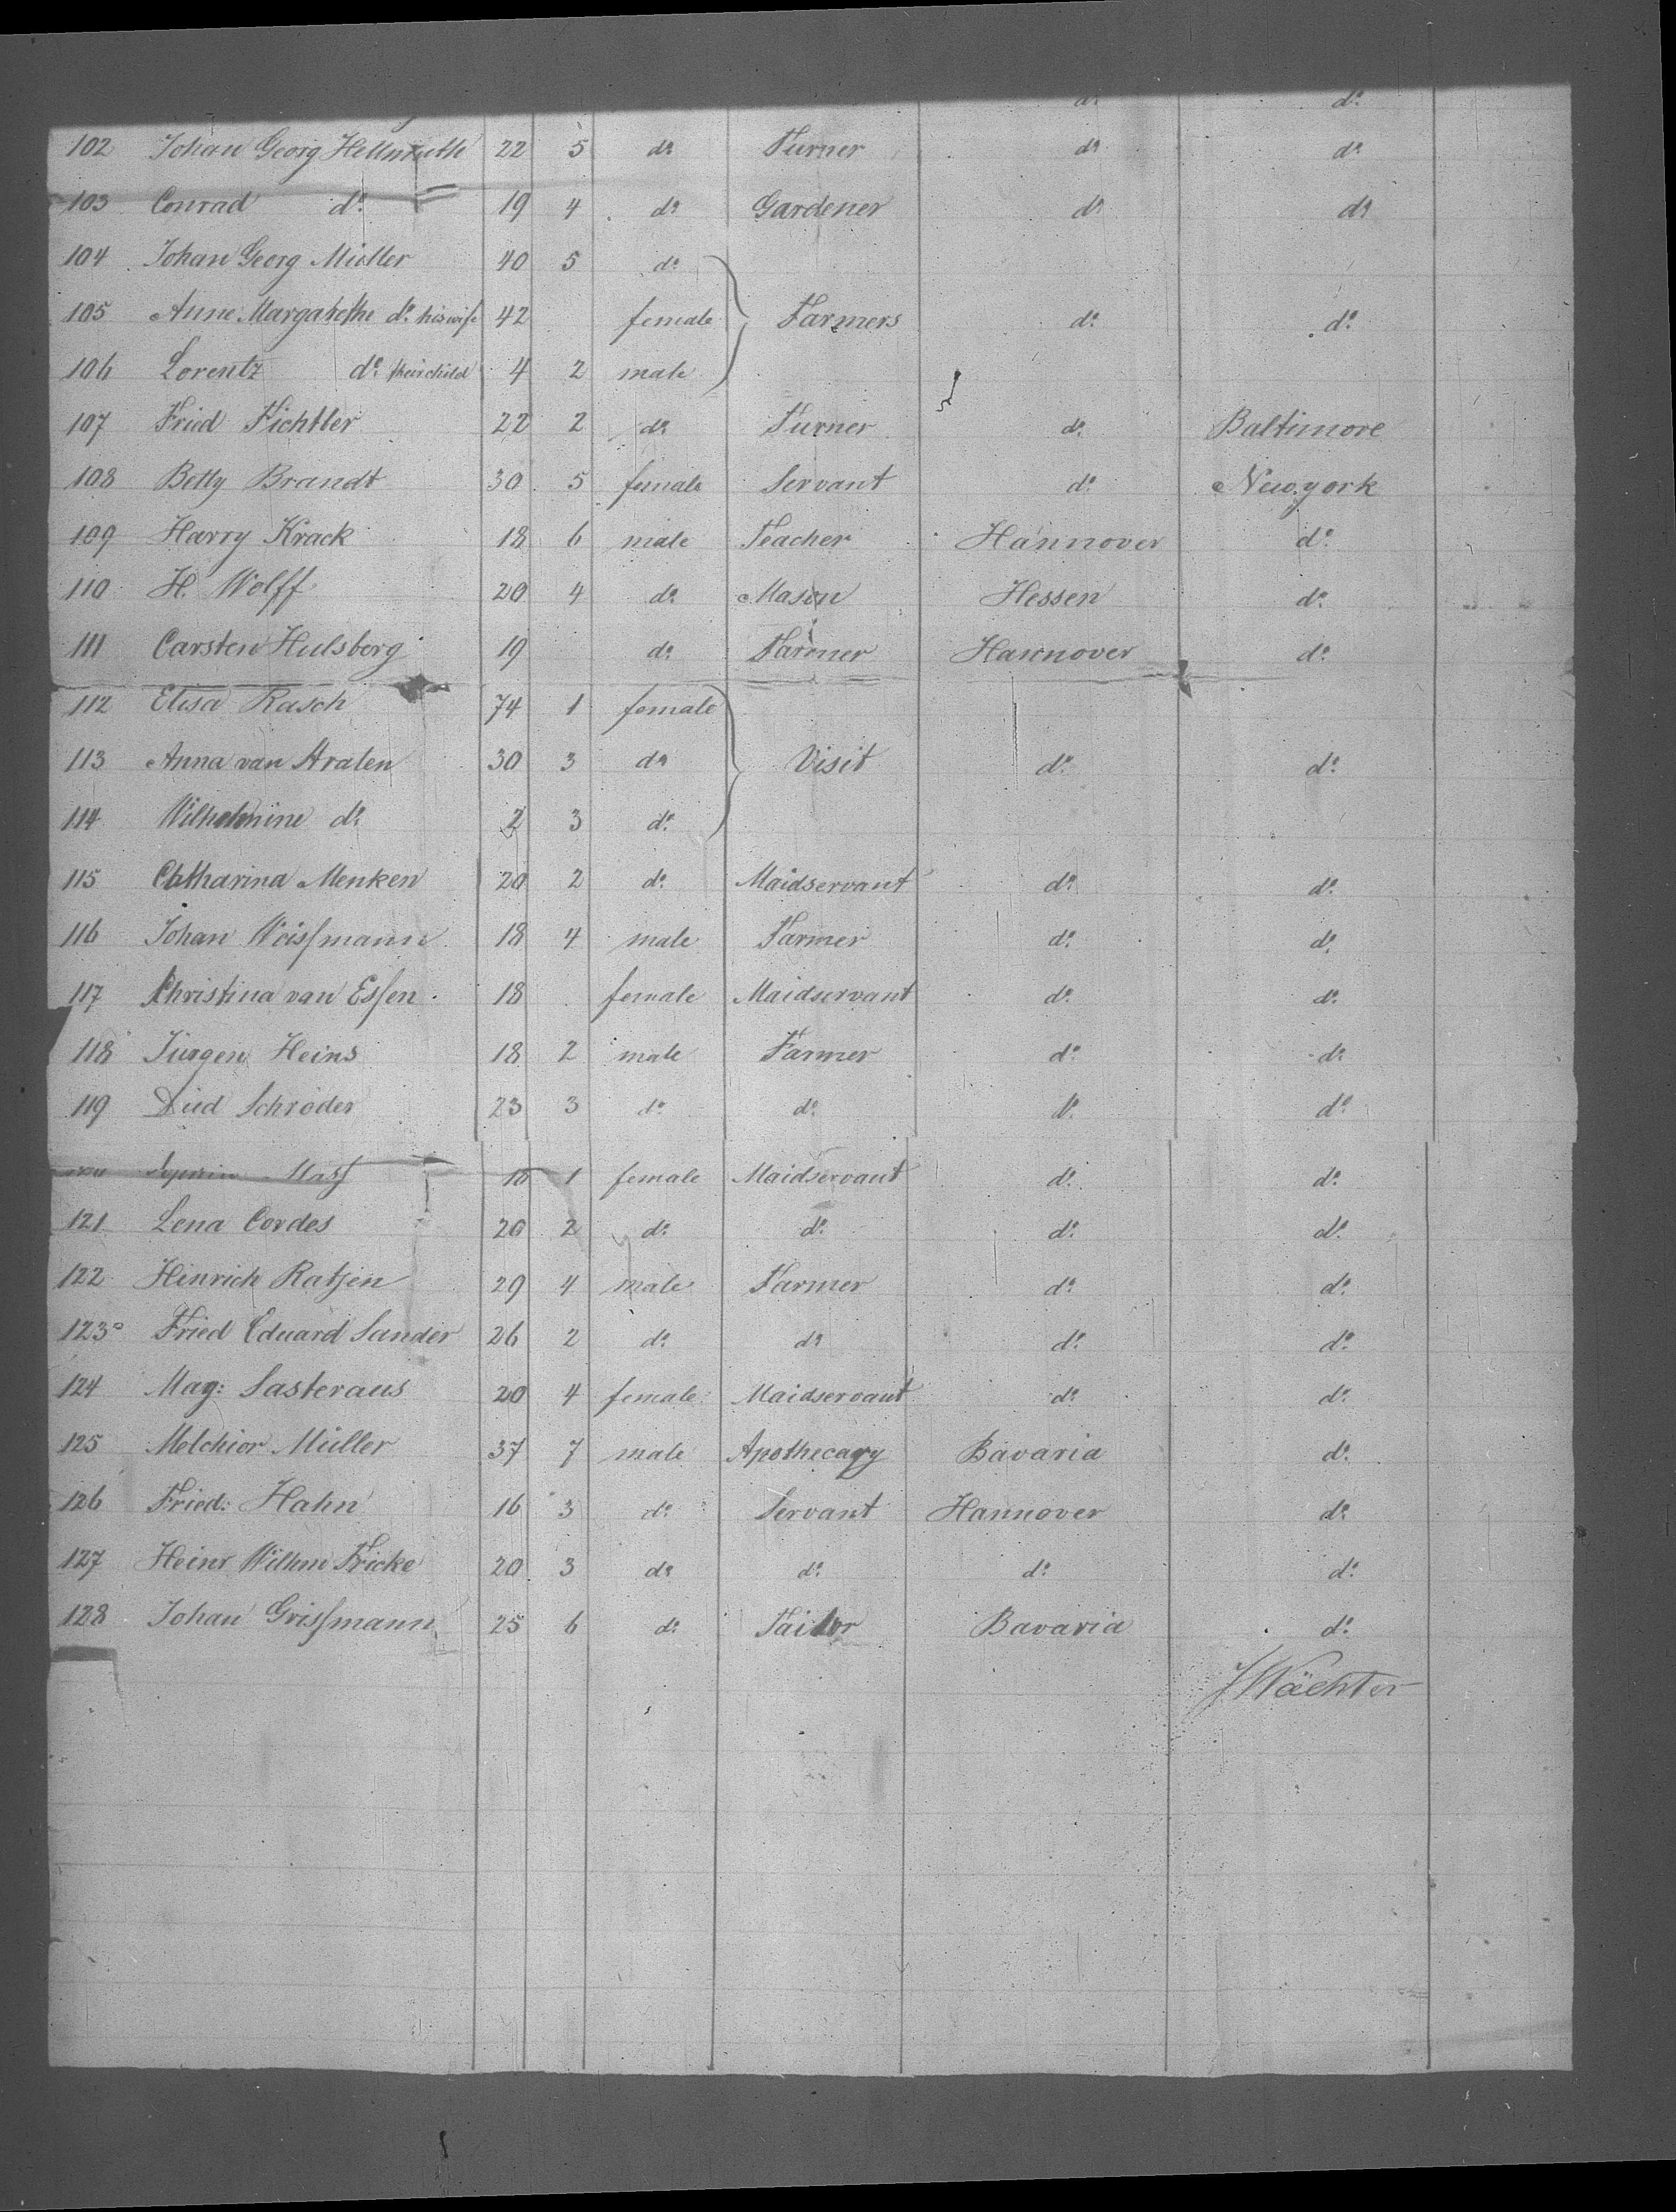 do do
102 Johan Georg Hellmuth 22 5 do Turner do do
103 Conrad do 19 4 do Gardener do do
104 Johan Georg Müller 40 5 do
105 Anne Margarethe do his wife 42 female Farmers do do
106 Lorentz do their child 4 2 male
107 Fried Fichtler 22 2 do Turner do Baltimore
108 Betty Brandt 30 5 female Servant do Newyork
109 Harry Krack 18 6 male Teacher Hannover do
110 H. Wolff 20 4 do Mason Hessen do
111 Carsten Hulsberg 19 do Farmer Hannover do
112 Elisa Rasch 74 1 female
113 Anna van Aralen 30 3 do Visit do do
114 Wilhelmine do 2 3 do
115 Catharina Menken 20 2 do Maidservant do do
116 Johan Weissmann 18 4 male Farmer do do
117 Christina van Essen 18 female Maidservant do do
118 Jürgen Heins 18 2 male Farmer do do
119 Died Schröder 23 3 do do do do
18 1 female Maidservant do do
121 Lena Cordes 20 2 do do do do
122 Hinrich Ratjen 29 4 male Farmer do do
123 Fried Eduard Sander 26 2 do do do do
124 Mag: Sasteraus 20 4 female Maidservant do do
125 Melchior Müller 37 7 male Apothecary Bavaria do
126 Fried: Hahn 16 3 do Servant Hannover do
127 Heinr Wilhm Fricke 20 3 do do do do
128 Johan Grissmann 25 6 do Tailor Bavaria do
J Wächter